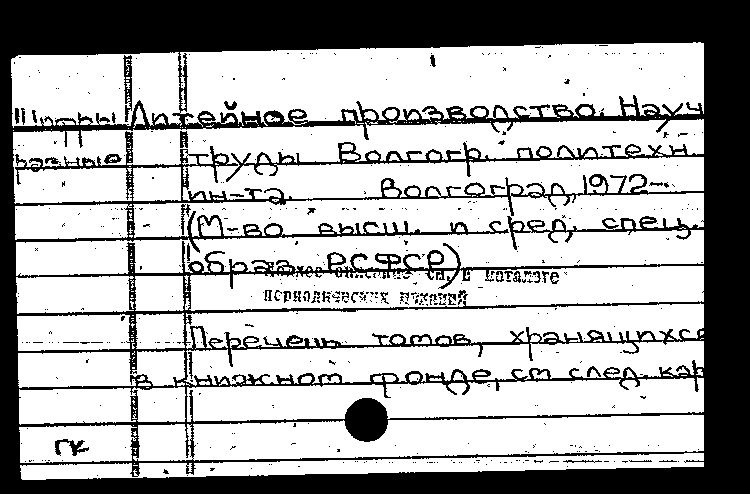 Шифры Литейное производство. Науч
разные труды Волгогр. политехн.
ин-та. Волгоград, 1972-.
(М-во высш. и сред. спец.
образ. РСФСР)
описание см. в каталоге
периодических изданий
Перечень томов, хранящихся
в книжном фонде, см след. кар
ГК